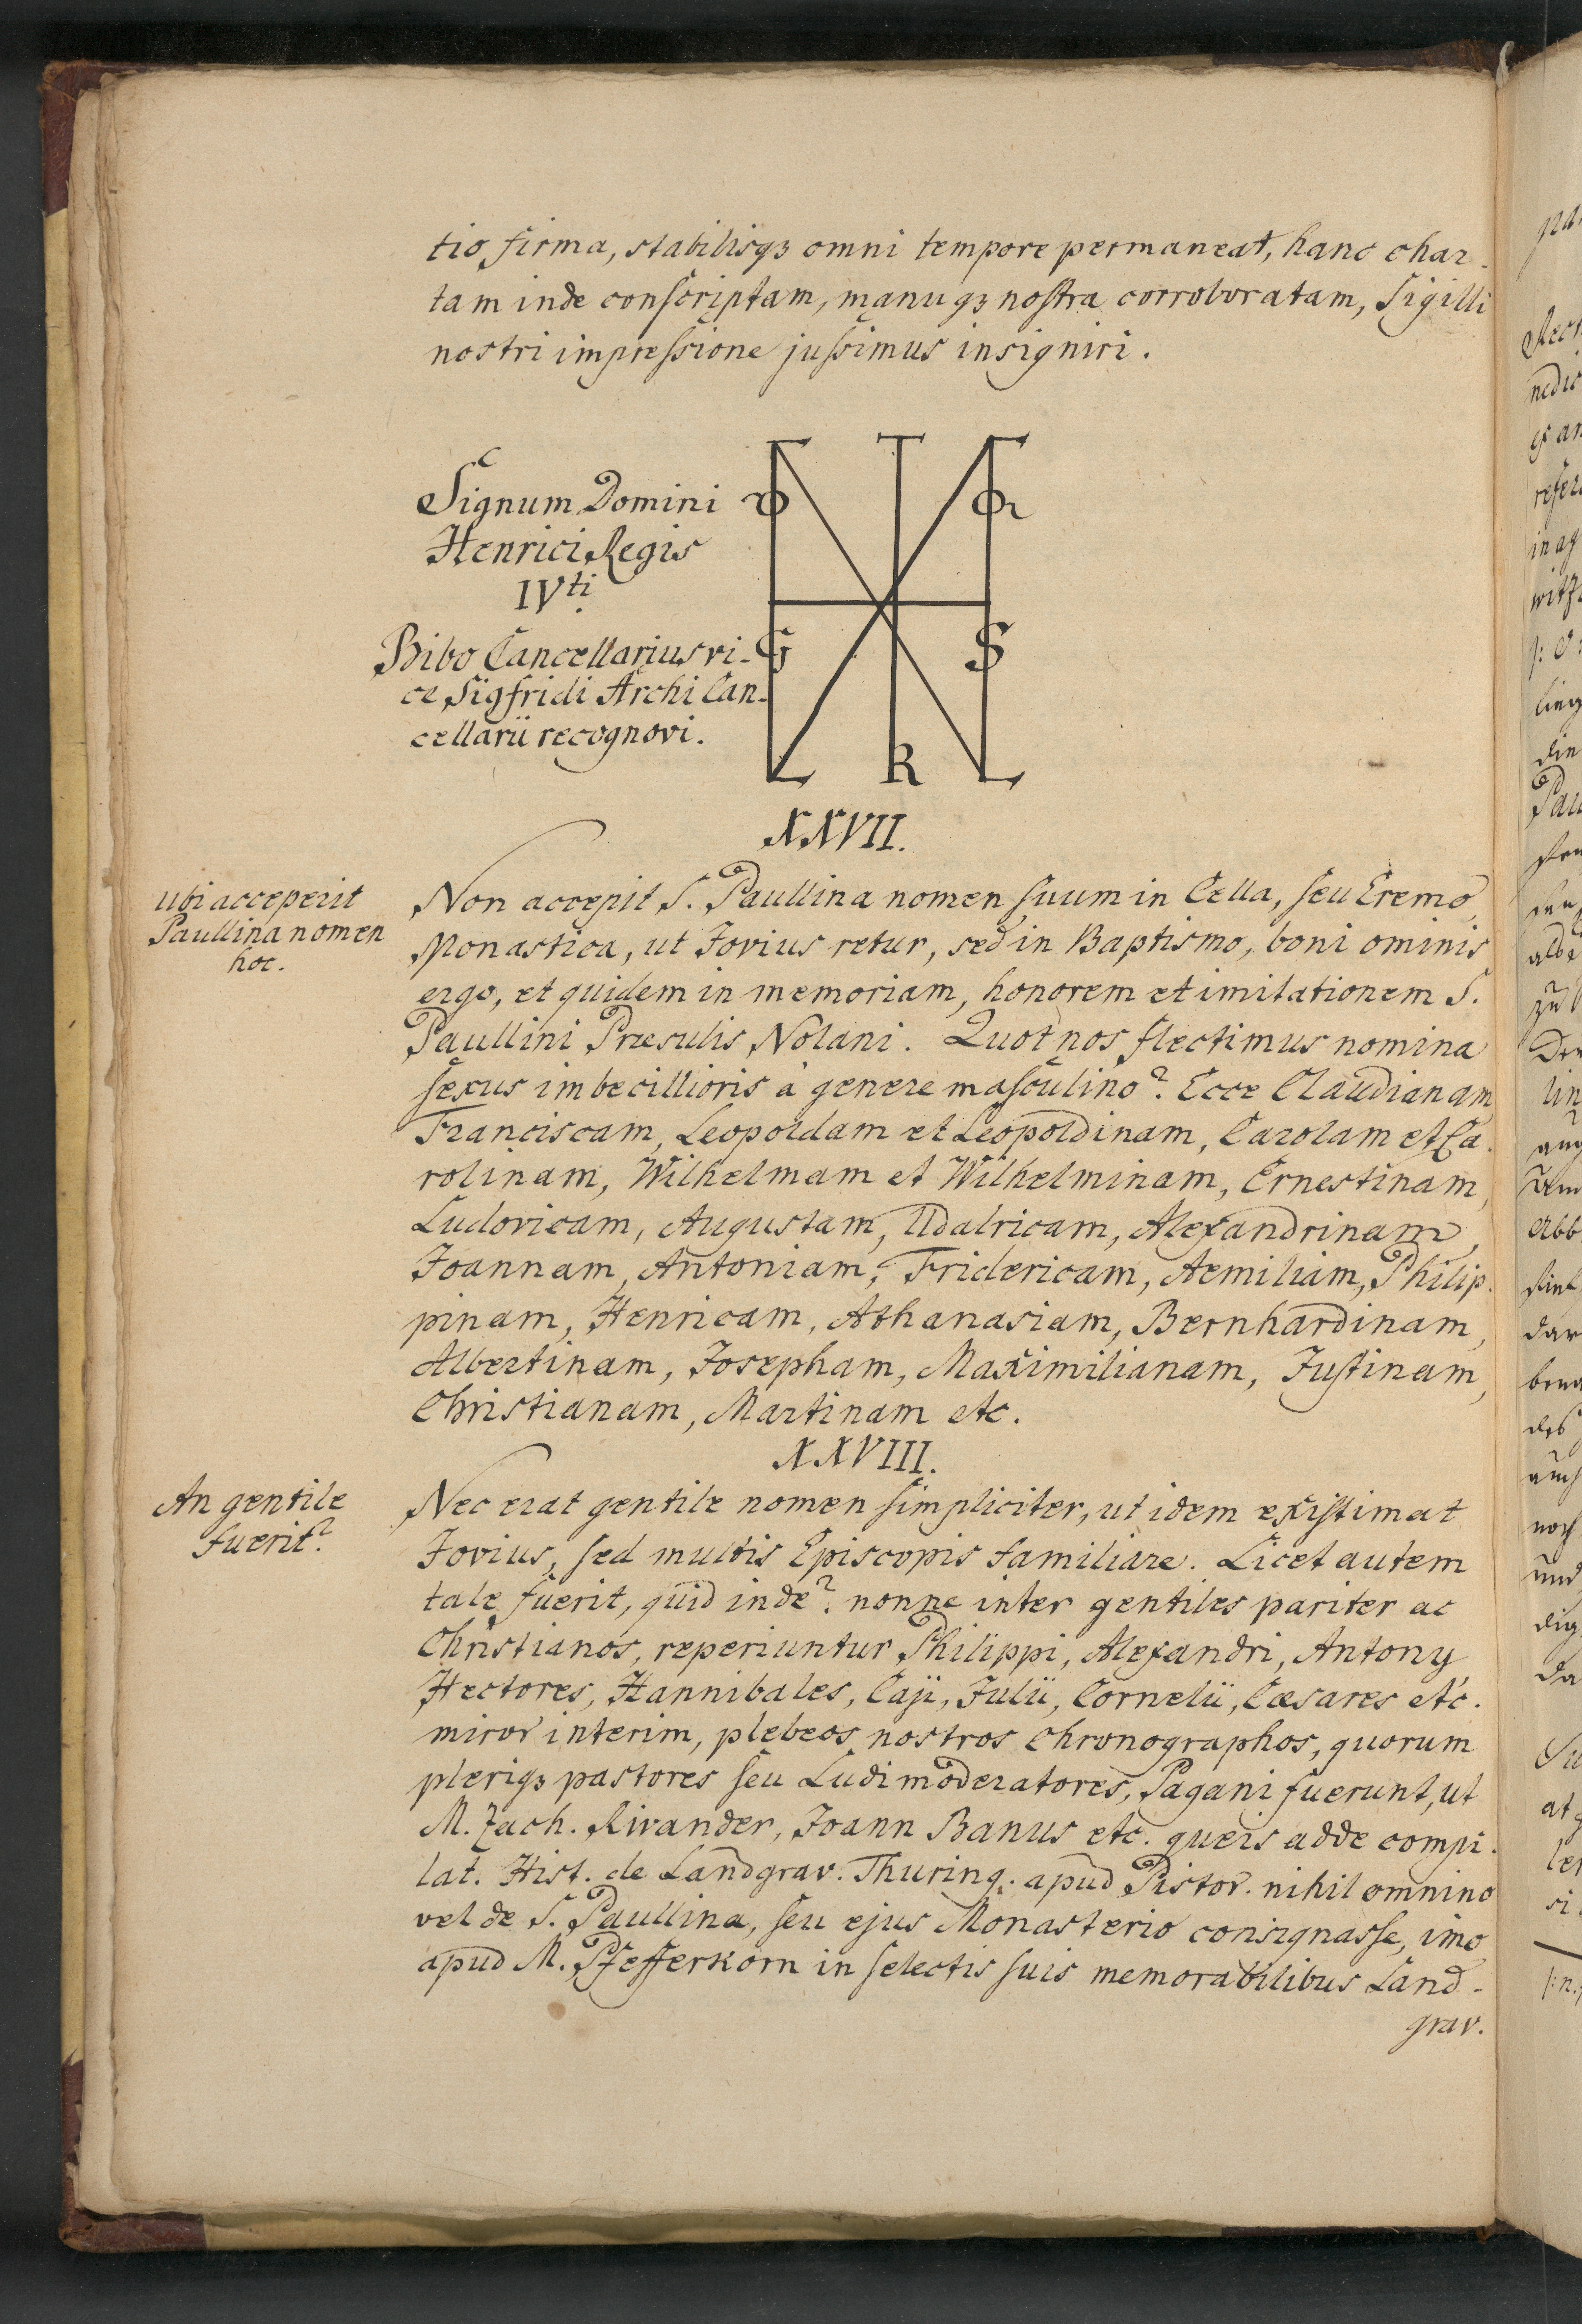 tio firma, stabilisqꝫ omni tempore permaneat, hanc char-
tam inde conſcriptam, manuqꝫ noſtra corroboratam, Sigilli
nostri impreſsione juſsimus insigniri.
Signum Domini
Henrici Regis
IVti
Bibo Cancellarius vi-
ce Sigfridi Archi Can-
cellarii recognovi.
XXVII.
ubi acceperit
Paullina nomen
hoc.
Non accepit S. Paullina nomen suum in Cella, seu Eremo
Monastica, ut Jovius retur, sed in Baptismo, boni ominis
ergo, et quidem in memoriam, honorem et imitationem S.
Paullini Præsulis Nolani. Quot nos flectimus nomina
sexus imbecillioris à genere maſculino? Ecce Claudianam
Franciscam, Leopoldam et Leopoldinam, Carolam et Ca-
rolinam, Wilhelmam et Wilhelminam, Ernestinam,
Ludovicam, Augustam, Udalricam, Alexandrinam,
Joannam, Antoniam, Fridericam, Aemiliam, Philip-
pinam, Henricam, Athanasiam, Bernhardinam,
Albertinam, Josepham, Maximilianam, Juſtinam,
Christianam, Martinam etc.
XXVIII.
An gentile
fuerit?
Nec erat gentile nomen simpliciter, ut idem exiſtimat
Jovius, sed multis Episcopis familiare. Licet autem
tale fuerit, quid inde? nonne inter gentiles pariter ac
Christianos, reperiuntur Philippi, Alexandri, Antony,
Hectores, Hannibales, Caji, Julii, Cornelii, Cæsares etc.
miror interim, plebeos nostros Chronographos, quorum
pleriqꝫ pastores seu Ludimoderatores, Pagani fuerunt, ut
M. Zach. Rivander, Joann Banus etc. queis adde compi-
lat. Hist. de Landgrav. Thuring. apud Pistor. nihil omnino
vel de S. Paullina, seu ejus Monasterio consignaſse, imo
apud M. Pfefferkorn in selectis suis memorabilibus Land-
grav.